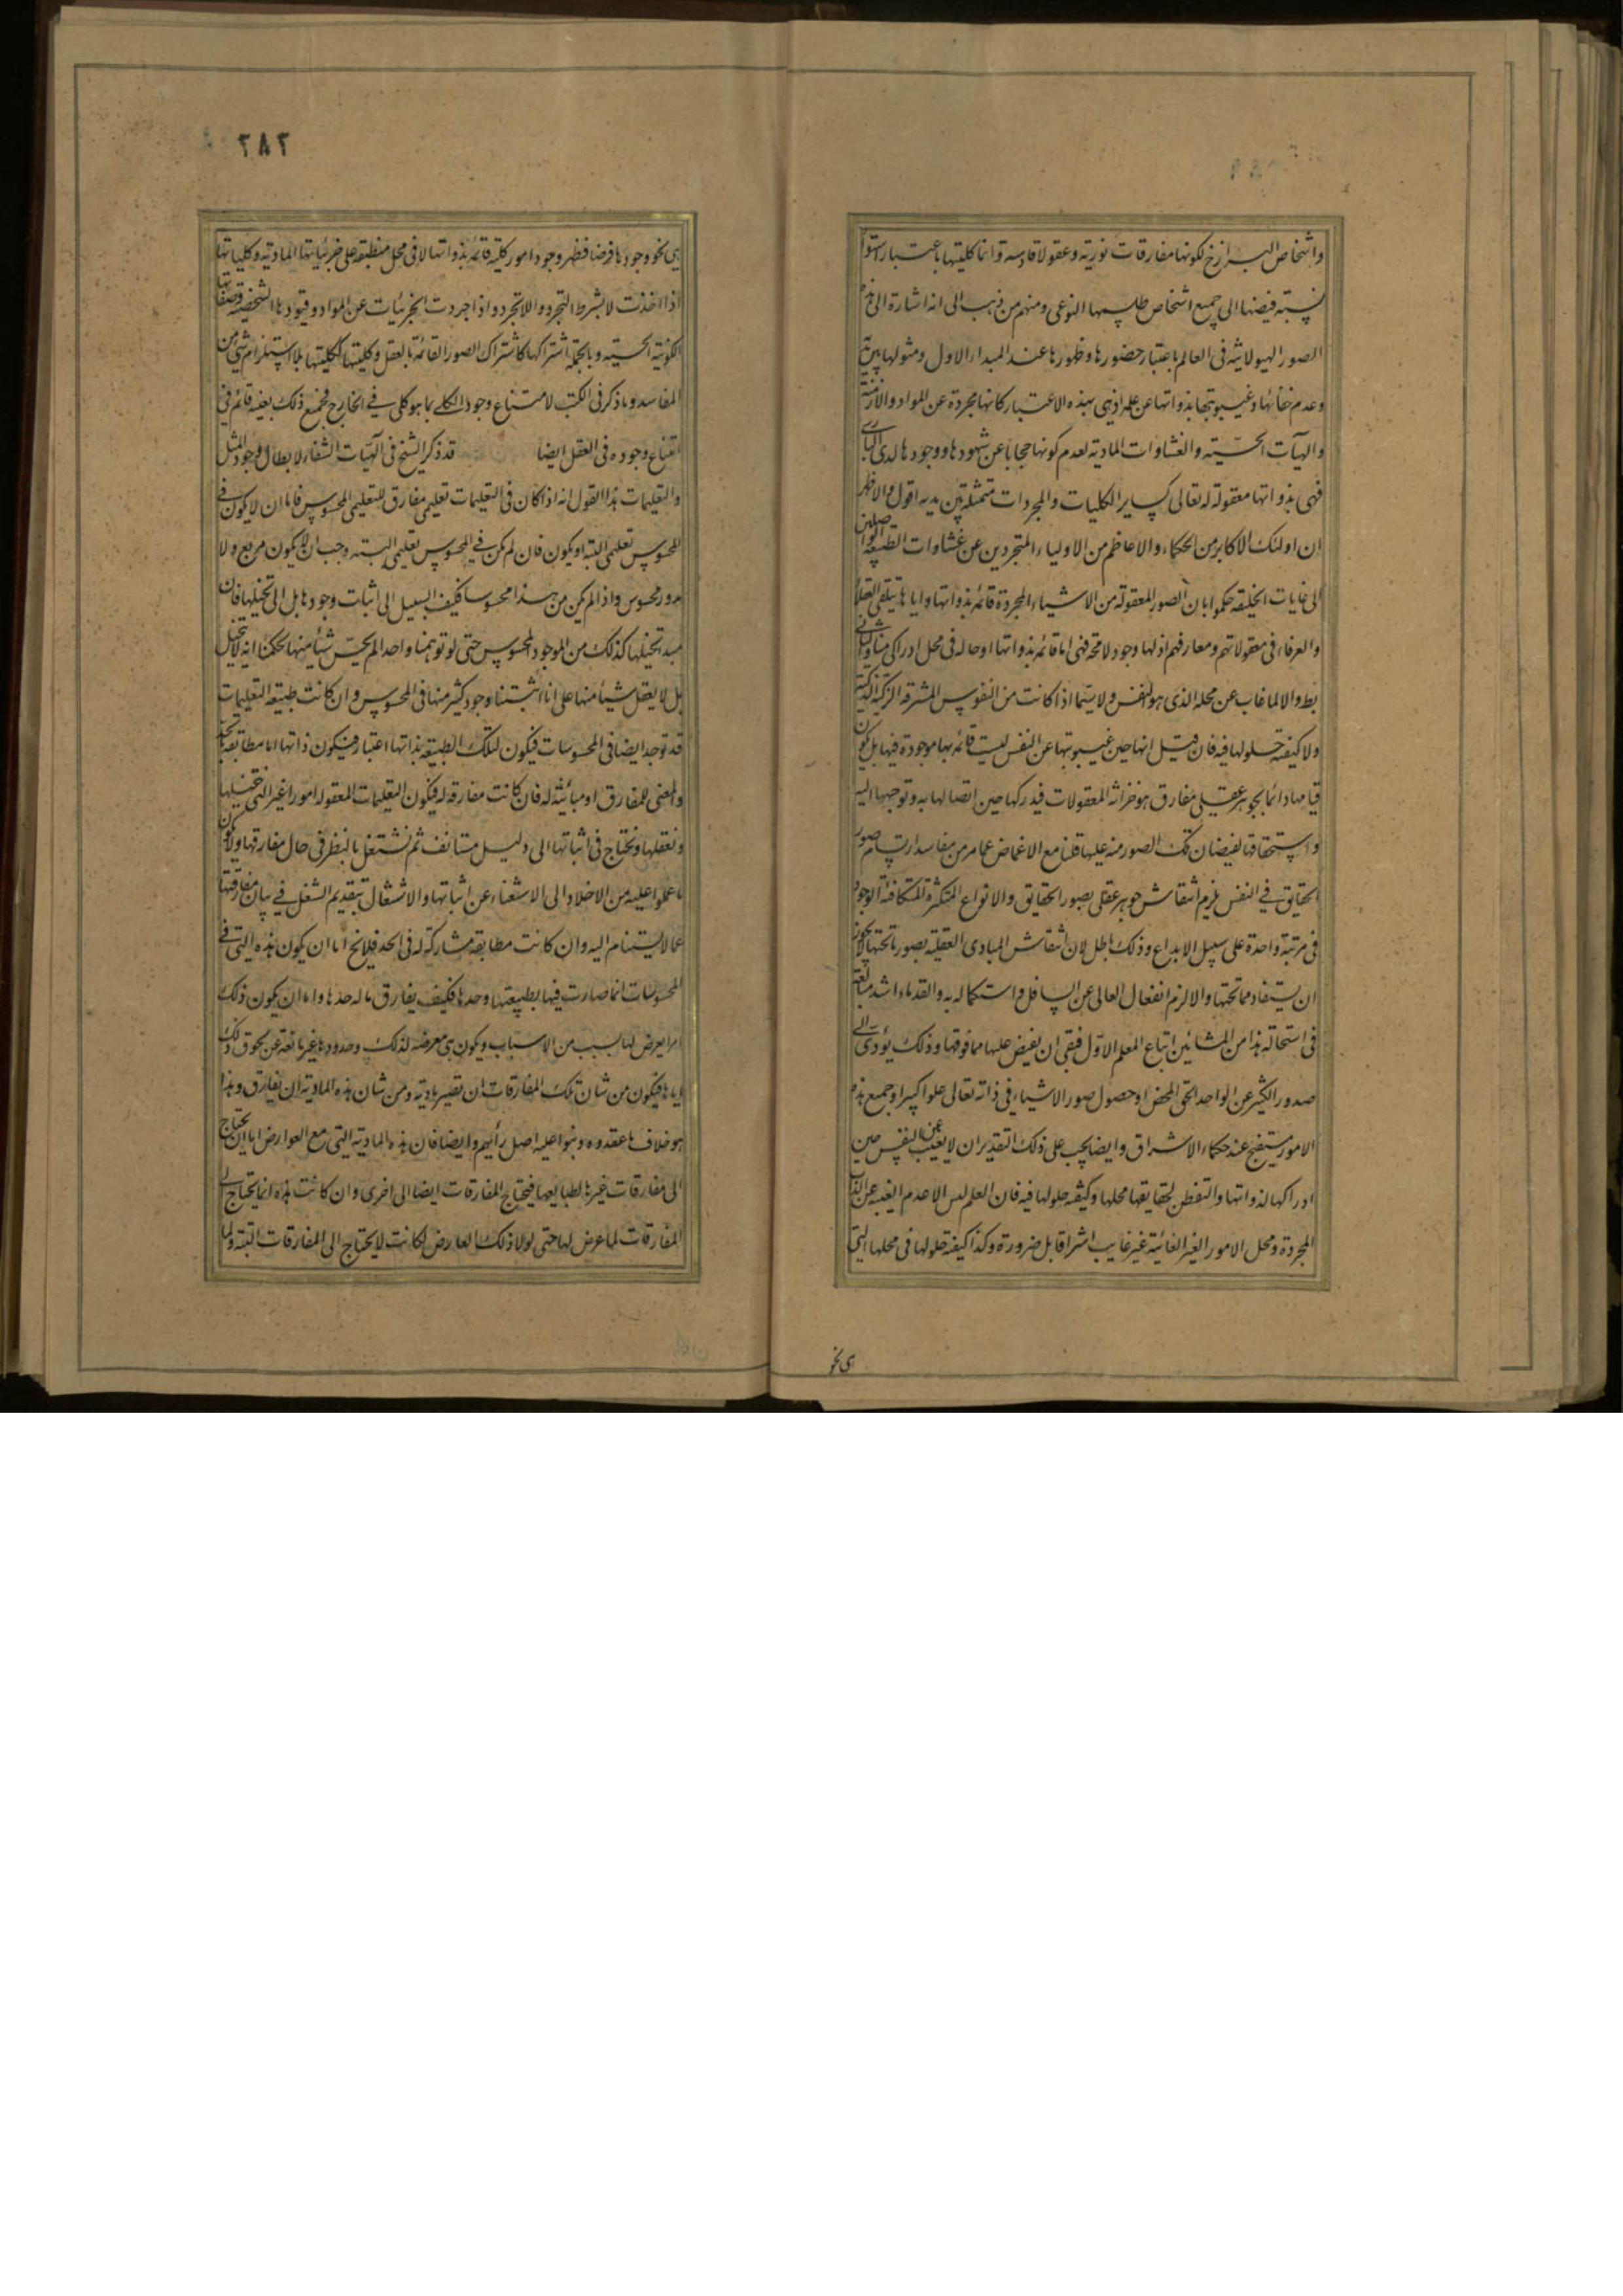 واشخاص البرازخ لكونها مفارقات نورية وعقولا قادسة وانما كليتها باعتبار استوا
نسبة فيضها الى جميع اشخاص طلسمها النوعى ومنهم من ذهب الى انه اشارة الى هذه
الصور الهيولانية فى العالم باعتبار حضورها وظهورها عند المبدا الاول ومثولها بين يديه
وعدم خفائها وغيبوبتها بذواتها عن علمه اذ هى بهذه الاعتبار كانها مجردة عن المواد والازمنة
والهيآت الحسية والغشاوات المادية لعدم كونها حجابا عن شهودها ووجودها لدى البارى
فهى بذواتها معقولة له تعالى كساير الكليات والمجردات متمثلة بين يديه اقول والاظهر
ان اولئك الاكابر من الحكماء والاعاظم من الاولياء المتجردين عن غشاوات الطبيعة الواصلين
الى غايات الخليقة حكموا بان الصور المعقولة من الاشياء المجردة قائمة بذواتها واياها يتلقى العقلاء
والعرفاء فى معقولاتهم ومعارفهم اذ لها وجود لا محة فهى اما قائمة بذواتها او حالة فى محل ادراكى منا والثانى
بط والا لما غاب عن محله الذى هو النفس ولا سيما اذا كانت من النفوس المشرقة الزكية الذكية
ولا كيفية حلولها فيه فان قيل انها حين غيبوبتها عن النفس ليست قائمة بها موجودة فيها بل يكون
قيامها دائما بجوهر عقلى مفارق هو خزانة المعقولات فيدركها حين اتصالها به وتوجهها اليه
واستحقاقها لفيضان تلك الصور منه عليها قلنا مع الاغماض عما مر من مفاسد ارتسام صور
الحقايق في النفس يلزم انتقاش جوهر عقلى بصور الحقايق والانواع المتكثرة المتكافئة الوجود
فى مرتبة واحدة على سبيل الابداع وذلك باطل لان انتقاش المبادى العقلية بصور ما تحتها لا يجوز
ان يستفاد مما تحتها والا لزم انفعال العالى عن السافل واستكماله به والقدماء اشد مبالغة
فى استحالة هذا من المشائين اتباع المعلم الاول فبقى ان يفيض عليها مما فوقها وذلك يؤدى الى
صدور الكثير عن الواحد الحق المحض او حصول صور الاشياء فى ذاته تعالى علوا كبيرا وجميع هذه
الامور مستقبح عند حكماء الاشراق وايضا يجب على ذلك التقدير ان لا يغيب عن النفس حين
ادراكها لذواتها والتفطن لحقايقها محلها وكيفية حلولها فيه فان العلم ليس الا عدم الغيبة عن الذات
المجردة ومحل الامور الغير الغائبة غير غايب اشراقا بل ضرورة وكذا كيفية حلولها فى محلها التى
هى نحو
٢٨٢
هى نحو وجودها فرضا فظهر وجود امور كلية قائمة بذواتها لا فى محل منطبقة على جزئياتها المادية وكلياتها
اذا اخذت لا بشرط التجرد واللاتجرد واذا جردت الجزئيات عن المواد وقيودها الشخصية وصفاتها
الكونية الحسية وبالجملة اشتراكها كاشتراك الصور القائمة بالعقل وكليتها ككليتها بلا استلزام شئ من
المفاسد وما ذكر فى الكتب لامتناع وجود الكلى بما هو كلى في الخارج فجميع ذلك بعينه قائم فى
امتناع وجوده فى العقل ايضا قد ذكر الشيخ فى الهيات الشفاء لابطال وجود المثل
والتعليمات هذا القول انه اذا كان فى التعليمات تعليمى مفارق للتعليمى المحسوس فاما ان لا يكون في
المحسوس تعليمى البتة او يكون فان لم يكن في المحسوس تعليمى البتة وجب ان لا يكون مربع ولا
مدور محسوس واذا لم يكن من هذا محسوسا فكيف السبيل الى اثبات وجودها بل الى تخيلها فان
مبدا تخيلها كذلك من الموجود المحسوس حتى لو توهمنا واحدا لم يحس شيأ منها لحكمنا انه لا يتخيل
بل لا يعقل شيأ منها على انا اثبتنا وجود كثير منها فى المحسوس وان كانت طبيعة التعليمات
قد توجد ايضا فى المحسوسات فيكون لتلك الطبيعة بذاتها اعتبار فيكون ذاتها اما مطابقة بالحد
والمعنى للمفارق او مباينة له فان كانت مفارقة له فيكون التعليمات المعقولة امورا غير التى نتخيلها
ونعقلها ونحتاج فى اثباتها الى دليل مستانف ثم نشتغل بالنظر فى حال مفارقتها ولا يكون
ما عملوا عليه من الاخلاد الى الاستغناء عن اثباتها والاشتغال بتقديم الشغل في بيان مفارقتها
عما لا يستنام اليه وان كانت مطابقة مشاركة له فى الحد فلا يخ اما ان يكون هذه التى في
المحسوسات انما صارت فيها بطبيعتها وحدها فكيف يفارق ما له حدها واما ان يكون ذلك
امرا يعرض لها بسبب من الاسباب ويكون هى معرضة لذلك وحدودها غير مانعة عن لحوق ذلك
اياها فيكون من شان تلك المفارقات ان تصير مادية ومن شان هذه المادية ان يفارق وهذا
هو خلاف ما عقدوه وبنوا عليه اصل رأيهم وايضا فان هذه المادية التى مع العوارض اما ان يحتاج
الى مفارقات غيرها لطبايعها فيحتاج المفارقات ايضا الى اخرى وان كانت هذه انما يحتاج الى
المفارقات لما عرض لها حتى لولا ذلك العارض لكانت لا يحتاج الى المفارقات البتة ولا